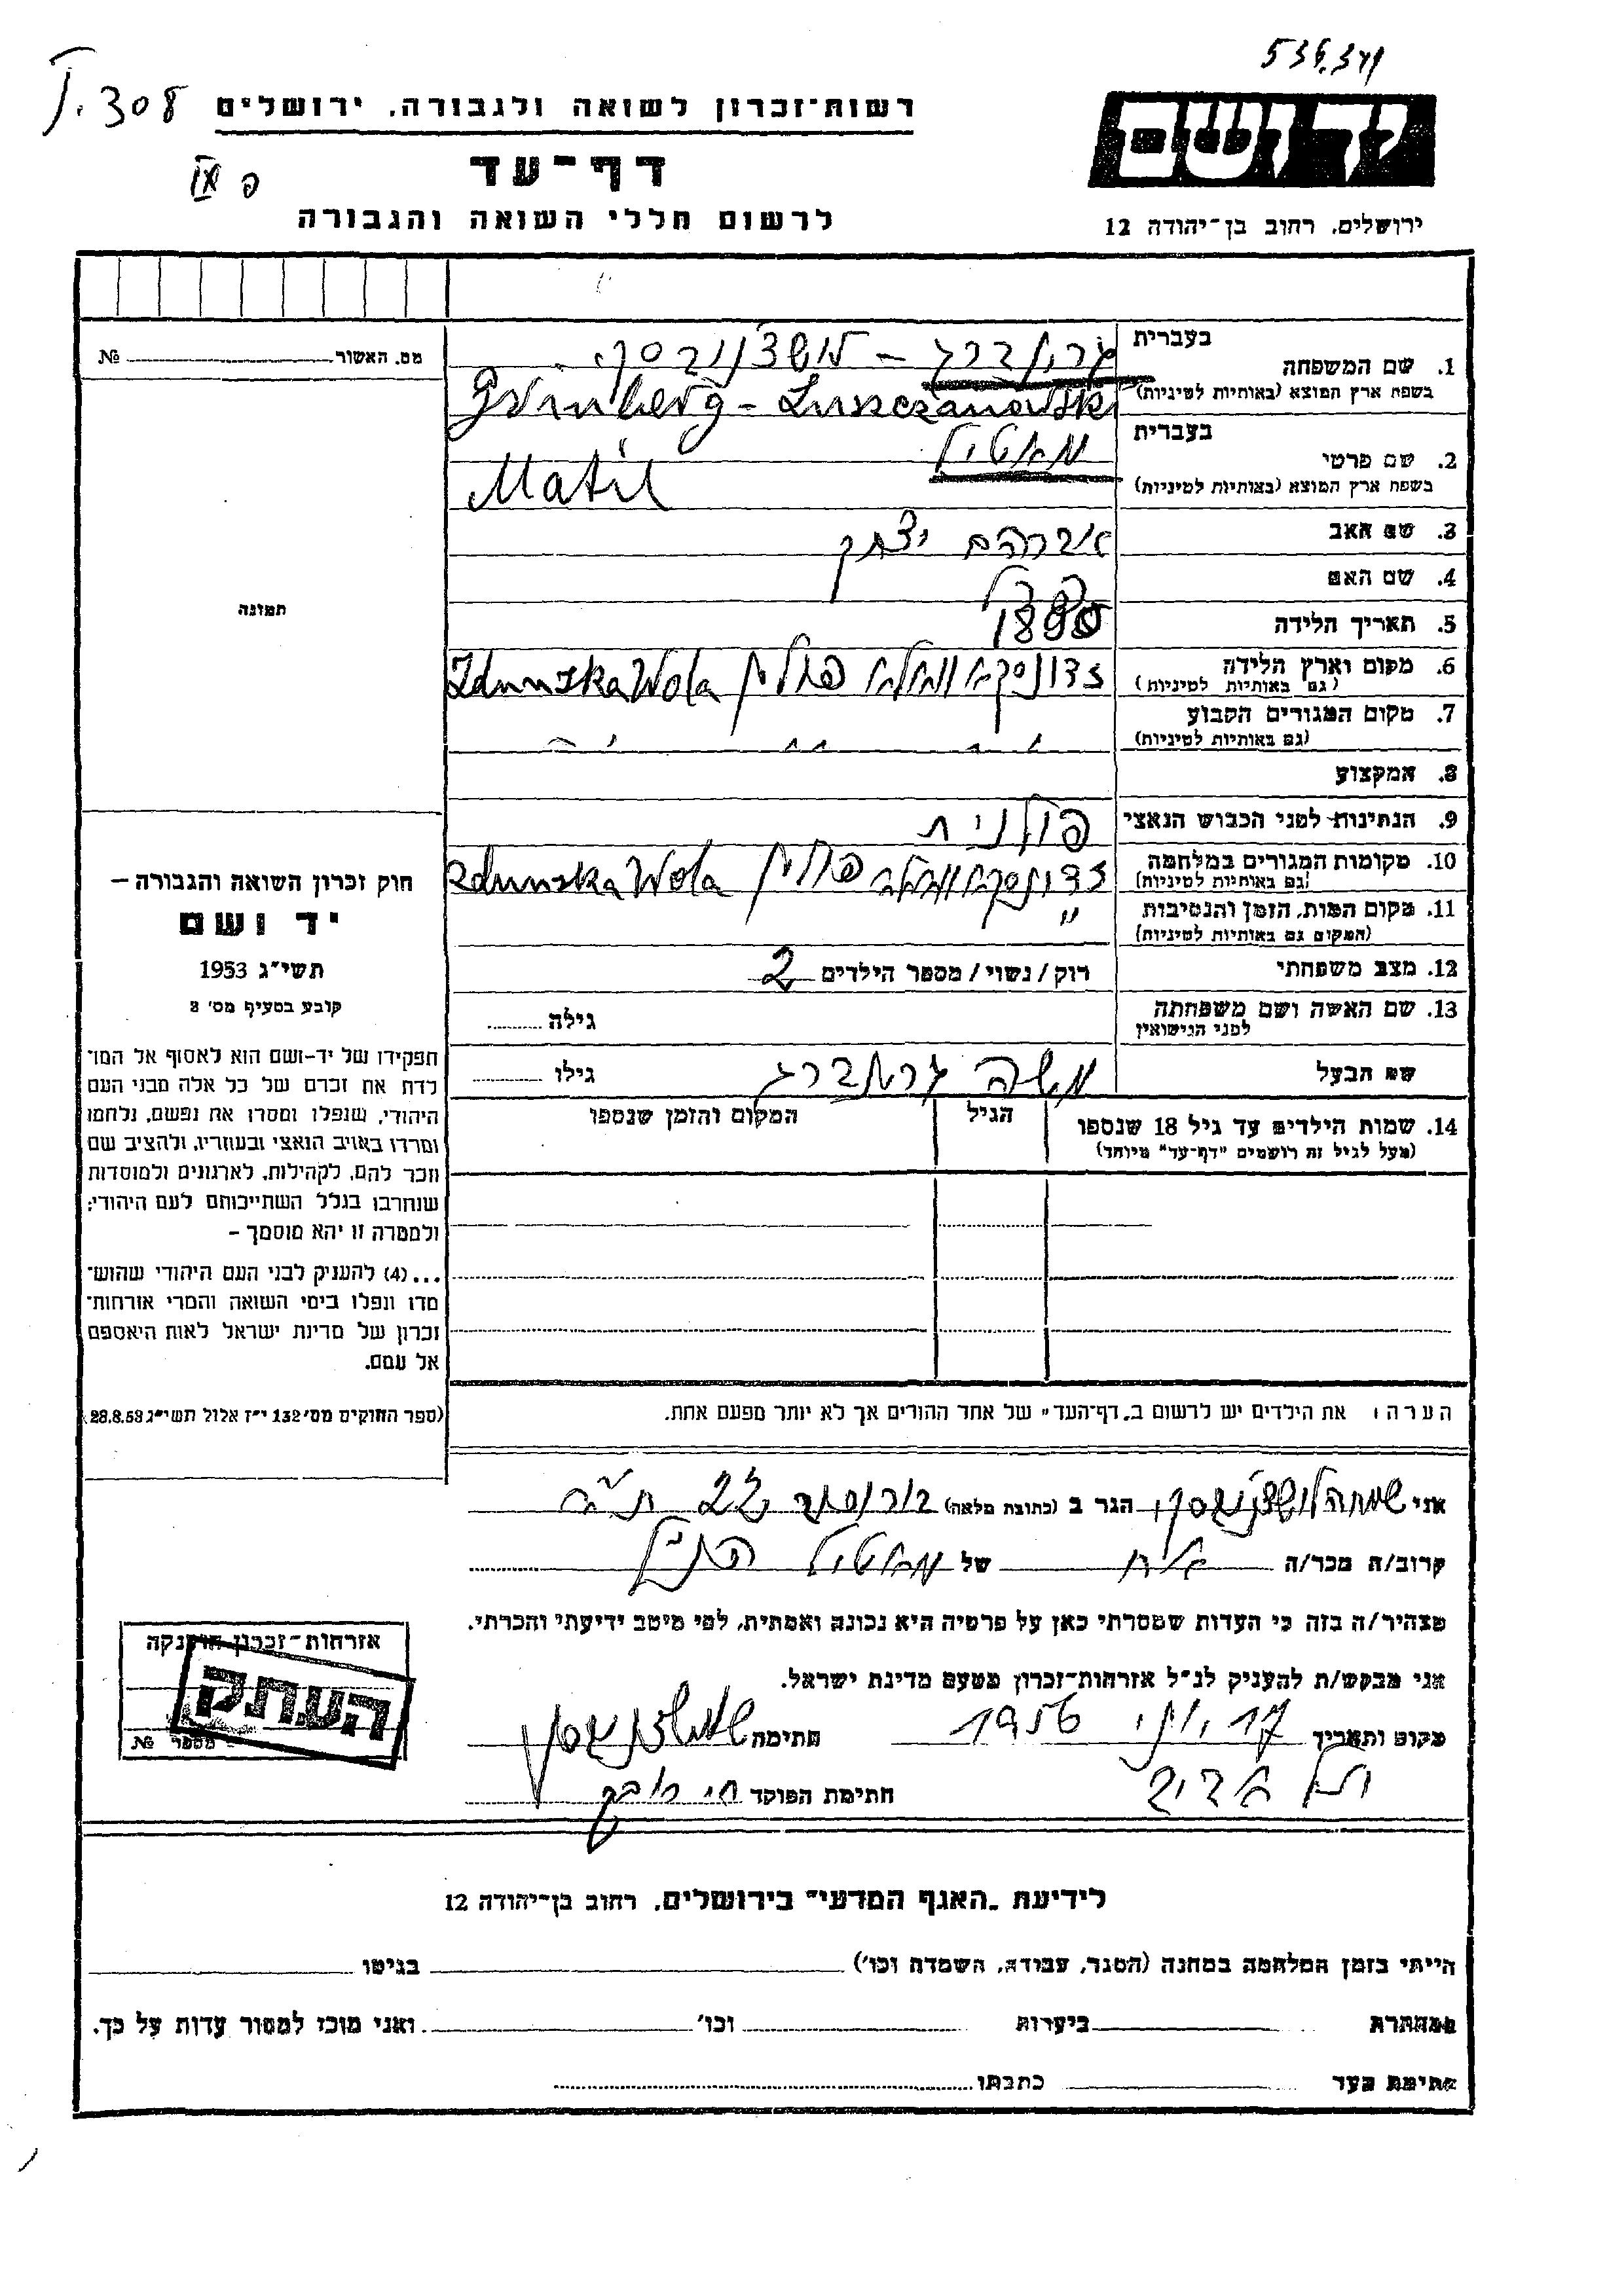 536.341
I.308
יד ושם
רשות־זכרון לשואה ולגבורה, ירושלים
דף־עד
פ
לרשום חללי השואה והגבורה
ירושלים, רחוב בן־יהודה 12
בעברית
1. שם המשפחה
בשפת ארץ המוצא (באותיות לטיניות)
גרינברג – לושצ'נובסקי
Grinberg - Luszczanowski
בעברית
2. שם פרטי
בשפת ארץ המוצא (באותיות לטיניות)
מאטיל
Matil
3. שם האב אברהם יצחק
4. שם האם
5. תאריך הלידה
6. מקום וארץ הלידה
(גם באותיות לטיניות)
זדונסקה וולה פולין Zdunska Wola
7. מקום המגורים הקבוע
(גם באותיות לטיניות)
8. המקצוע
9. הנתינות לפני הכבוש הנאצי פולנית
10. מקומות המגורים במלחמה
(גם באותיות לטיניות)
זדונסקה וולה פולין Zdunska Wola
11. מקום המות, הזמן והנסיבות "
(המקום גם באותיות לטיניות)
12. מצב משפחתי רוק/נשוי/מספר הילדים 2
13. שם האשה ושם משפחתה גילה
לפני הנישואין
שם הבעל משה גרינברג גילו
14. שמות הילדים עד גיל 18 שנספו הגיל המקום והזמן שנספו
(מעל לגיל זה רושמים "דף־עד" מיוחד)
הערה: את הילדים יש לרשום ב„דף־העד" של אחד ההורים אך לא יותר מפעם אחת.
מס. האשור №
תמונה
חוק זכרון השואה והגבורה –
יד ושם
תשי"ג 1953
קובע בסעיף מס' 2
תפקידו של יד-ושם הוא לאסוף אל המו־
לדת את זכרם של כל אלה מבני העם
היהודי, שנפלו ומסרו את נפשם, נלחמו
ומרדו באויב הנאצי ובעוזריו, ולהציב שם
וזכר להם, לקהילות, לארגונים ולמוסדות
שנחרבו בגלל השתייכותם לעם היהודי;
ולמטרה זו יהא מוסמך –
...(4) להעניק לבני העם היהודי שהוש־
מדו ונפלו בימי השואה והמרי אזרחות־
זכרון של מדינת ישראל לאות היאספם
אל עמם.
(ספר החוקים מס' 132 י"ז אלול תשי"ג 28.8.53)
אני שמחה לושצ'נובסקי הגר ב (כתובת מלאה) 22 ת"א
קרוב/ה מכר/ה אח של מאטיל הנ"ל
מצהיר/ה בזה כי העדות שמסרתי כאן על פרטיה היא נכונה ואמתית, לפי מיטב ידיעתי והכרתי.
אני מבקש/ת להעניק לנ"ל אזרחות־זכרון מטעם מדינת ישראל.
מקום ותאריך 17 יוני 1956 חתימה
תל אביב חתימת הפוקד
אזרחות־זכרון הוענקה
העתק
מספר №
לידיעת „האגף המדעי" בירושלים, רחוב בן־יהודה 12
הייתי בזמן המלחמה במחנה (הסגר, עבודה, השמדה וכו') בגיטו
במחתרת ביערות וכו' ואני מוכן למסור עדות על כך.
חתימת העד כתבתו